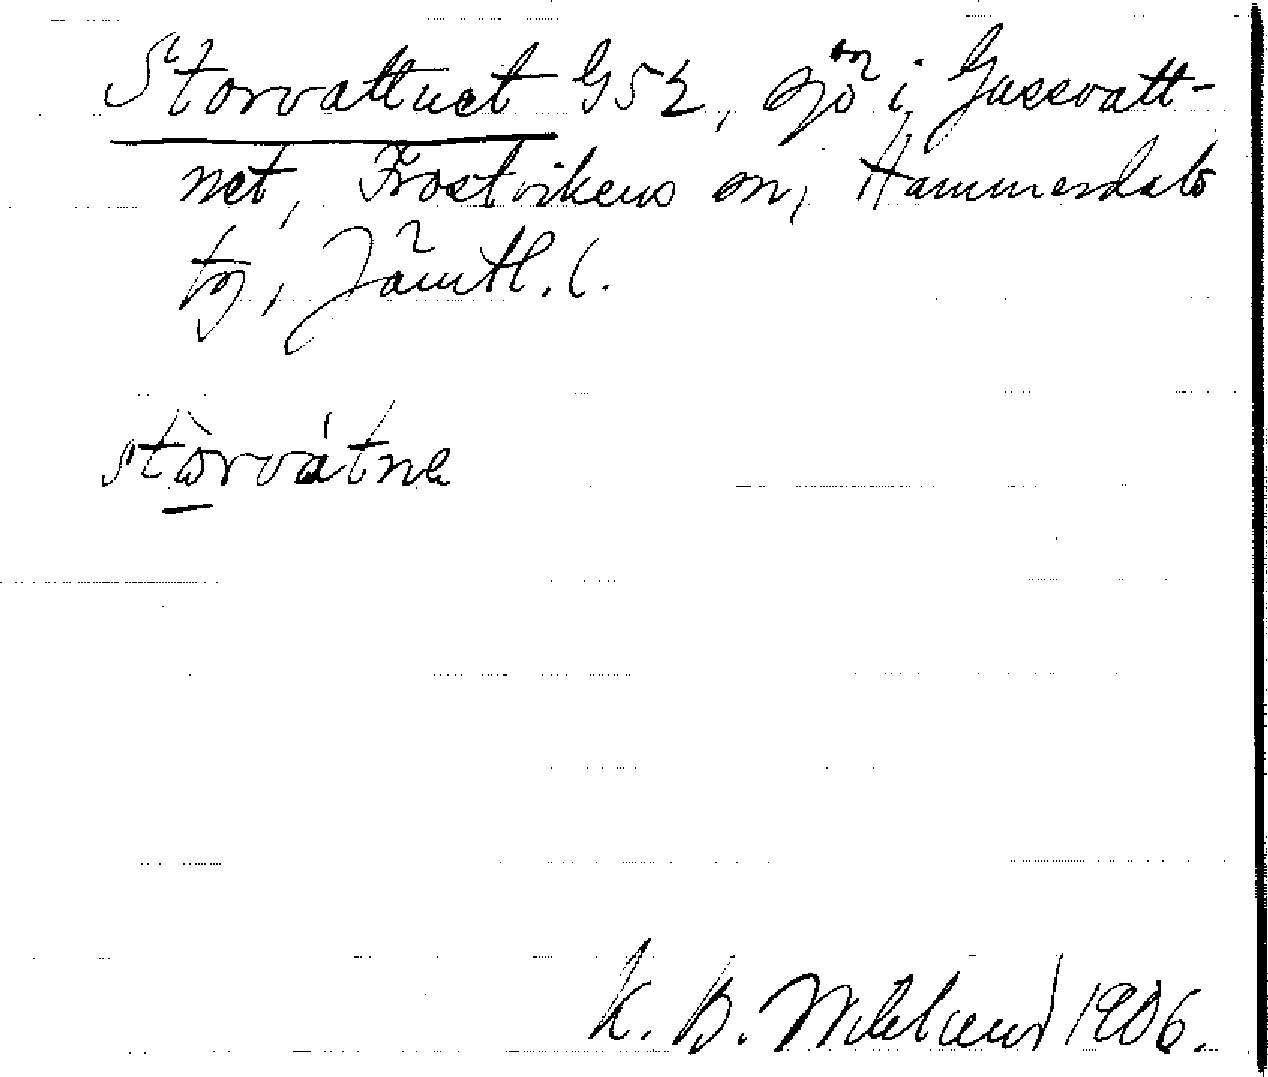 Storvattnet G52, sjö i Gussvatt-
net, Frostvikens sn, Hammerdals
tg, Jämtl. l.
stòrvátne
K. B. Wiklund 1906.